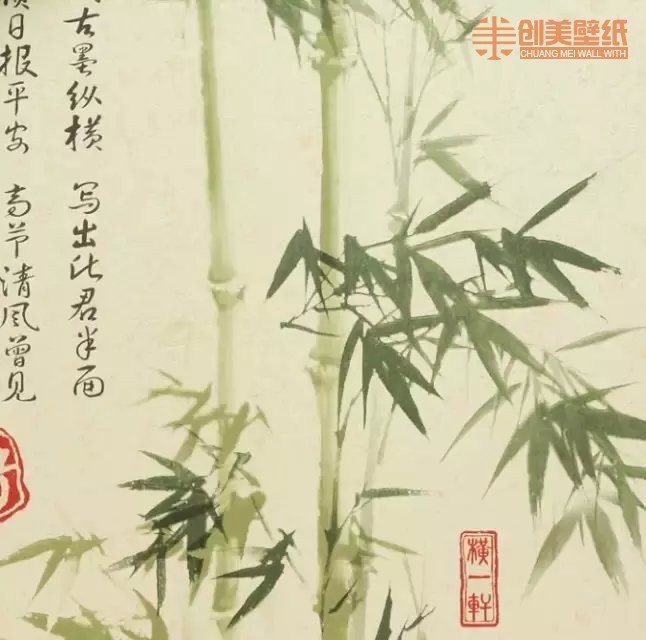 创美壁纸
CHUANG MEI WALL WITH
古墨纵横 写出此君半面
日报平安 高节清风曾见
横一軒